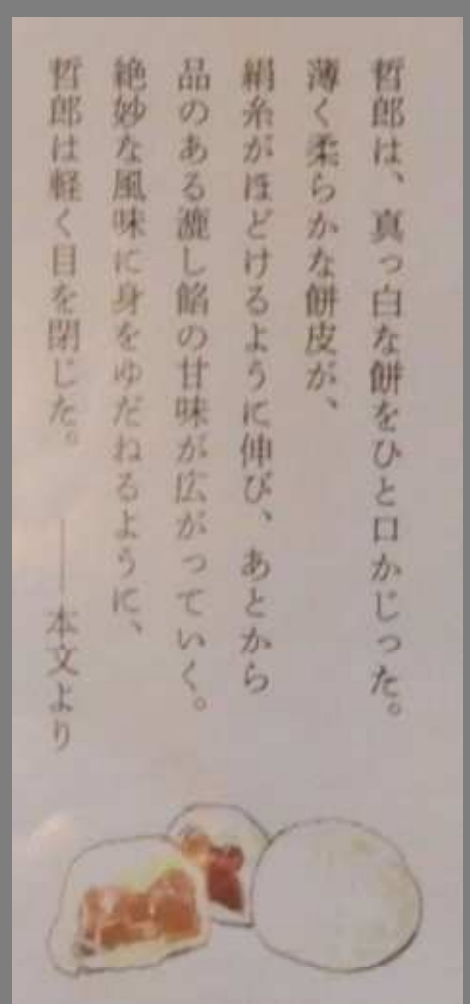 哲郎は、真っ白な餅をひと口かじった。
薄く柔らかな餅皮が、
絹糸がほどけるように伸び、あとから
品のある漉し餡の甘味が広がっていく。
絶妙な風味に身をゆだねるように、
哲郎は軽く目を閉じた。――本文より